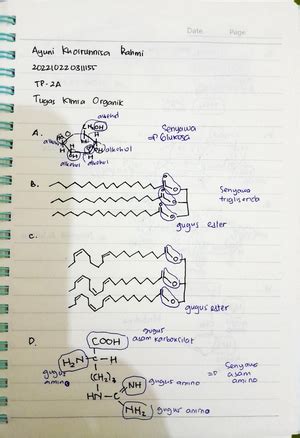 Date Page
Ayuni Khoirunnisa Rahmi
202210220311155
TP-2A
Tugas Kimia Organik
A.
alkohol
OH
Senyawa
⇒ Glukosa
alkohol
alkohol alkohol
B.
Senyawa
trigliserida
gugus ester
C.
gugus ester
D.
gugus
COOH asam karboksilat
H₂N - C - H
gugus
amino
(CH₂)₃
C = NH gugus amino
HN - C
⇒ Senyawa
asam
amino
NH₂ gugus amino